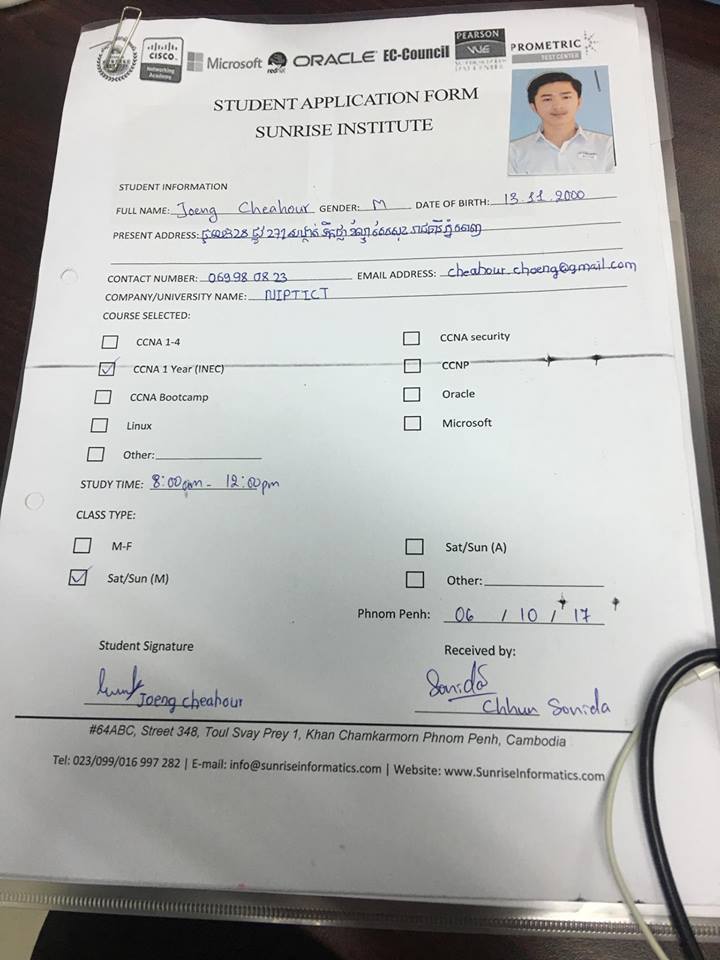 CISCO Networking Academy Microsoft redhat ORACLE EC-Council PEARSON VUE PROMETRIC TEST CENTER
STUDENT APPLICATION FORM
SUNRISE INSTITUTE
STUDENT INFORMATION
FULL NAME: Joeng Cheahour GENDER: M DATE OF BIRTH: 13.11.2000
PRESENT ADDRESS:
CONTACT NUMBER: 06998 08 23 EMAIL ADDRESS: cheahour.choeng@gmail.com
COMPANY/UNIVERSITY NAME: NIPTICT
COURSE SELECTED:
CCNA 1-4 CCNA security
CCNA 1 Year (INEC) CCNP
CCNA Bootcamp Oracle
Linux Microsoft
Other:
STUDY TIME: 8:00am - 12:00pm
CLASS TYPE:
M-F Sat/Sun (A)
Sat/Sun (M) Other:
Phnom Penh: 06 / 10 / 17
Student Signature Received by:
Joeng cheahour Sonida
Chhun Sonida
#64ABC, Street 348, Toul Svay Prey 1, Khan Chamkarmorn Phnom Penh, Cambodia
Tel: 023/099/016 997 282 | E-mail: info@sunriseinformatics.com | Website: www.SunriseInformatics.com